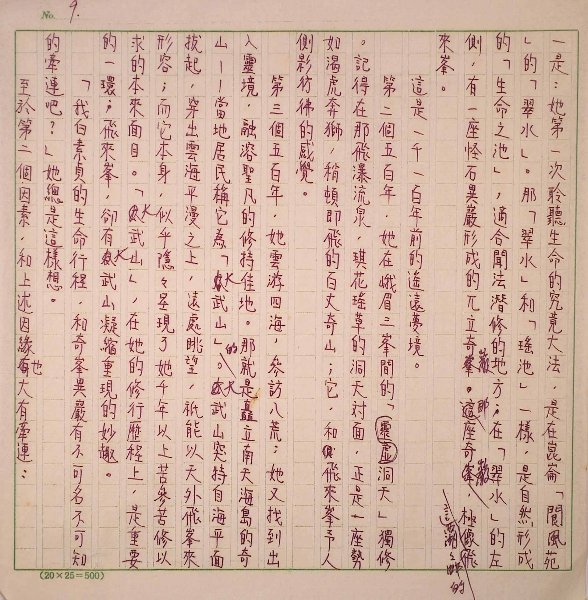 No. 9.
一是:她第一次聆聽生命的究竟大法,是在崑崙「閬風苑
」的「翠水」。那「翠水」和「瑤池」一樣,是自然形成
的「生命之池」,適合聞法潛修的地方;在「翠水」的左
側,有一座怪石異巖形成的兀立奇巖。這座奇巖,極像飛
來峯。
這是一千一百年前的遙遠夢境。
第二個五百年,她在峨眉三峯間的「靈虛洞天」獨修
。記得在那飛瀑流泉,琪花瑤草的洞天対面,正是一座勢
如渴虎奔獅,稍頓即飛的百丈奇山;它,和飛來峯予人
側影彷彿的感覺。
第三個五百年,她雲游四海,參訪八荒;她又找到出
入靈境,融溶聖凡的修持佳地。那就是矗立南天海島的奇
山——當地居民稱它為「大武山」。大武山的突特自海平面
拔起,穿出雲海平漫之上,遠處眺望,祇能以天外飛峯來
形容;而它本身,似乎隱々呈現了她千年以上苦參苦修以
求的本來面目。「大武山」,在她的修行歷程上,是重要
的一環;飛來峯,卻有大武山凝縮重現的妙趣。
「我白素貞的生命行程,和奇峯異巖有不可名不可知
的牽連吧?」她總是這樣想。
至於第二個因素,和上述因緣也大有牽連:
(20×25=500)